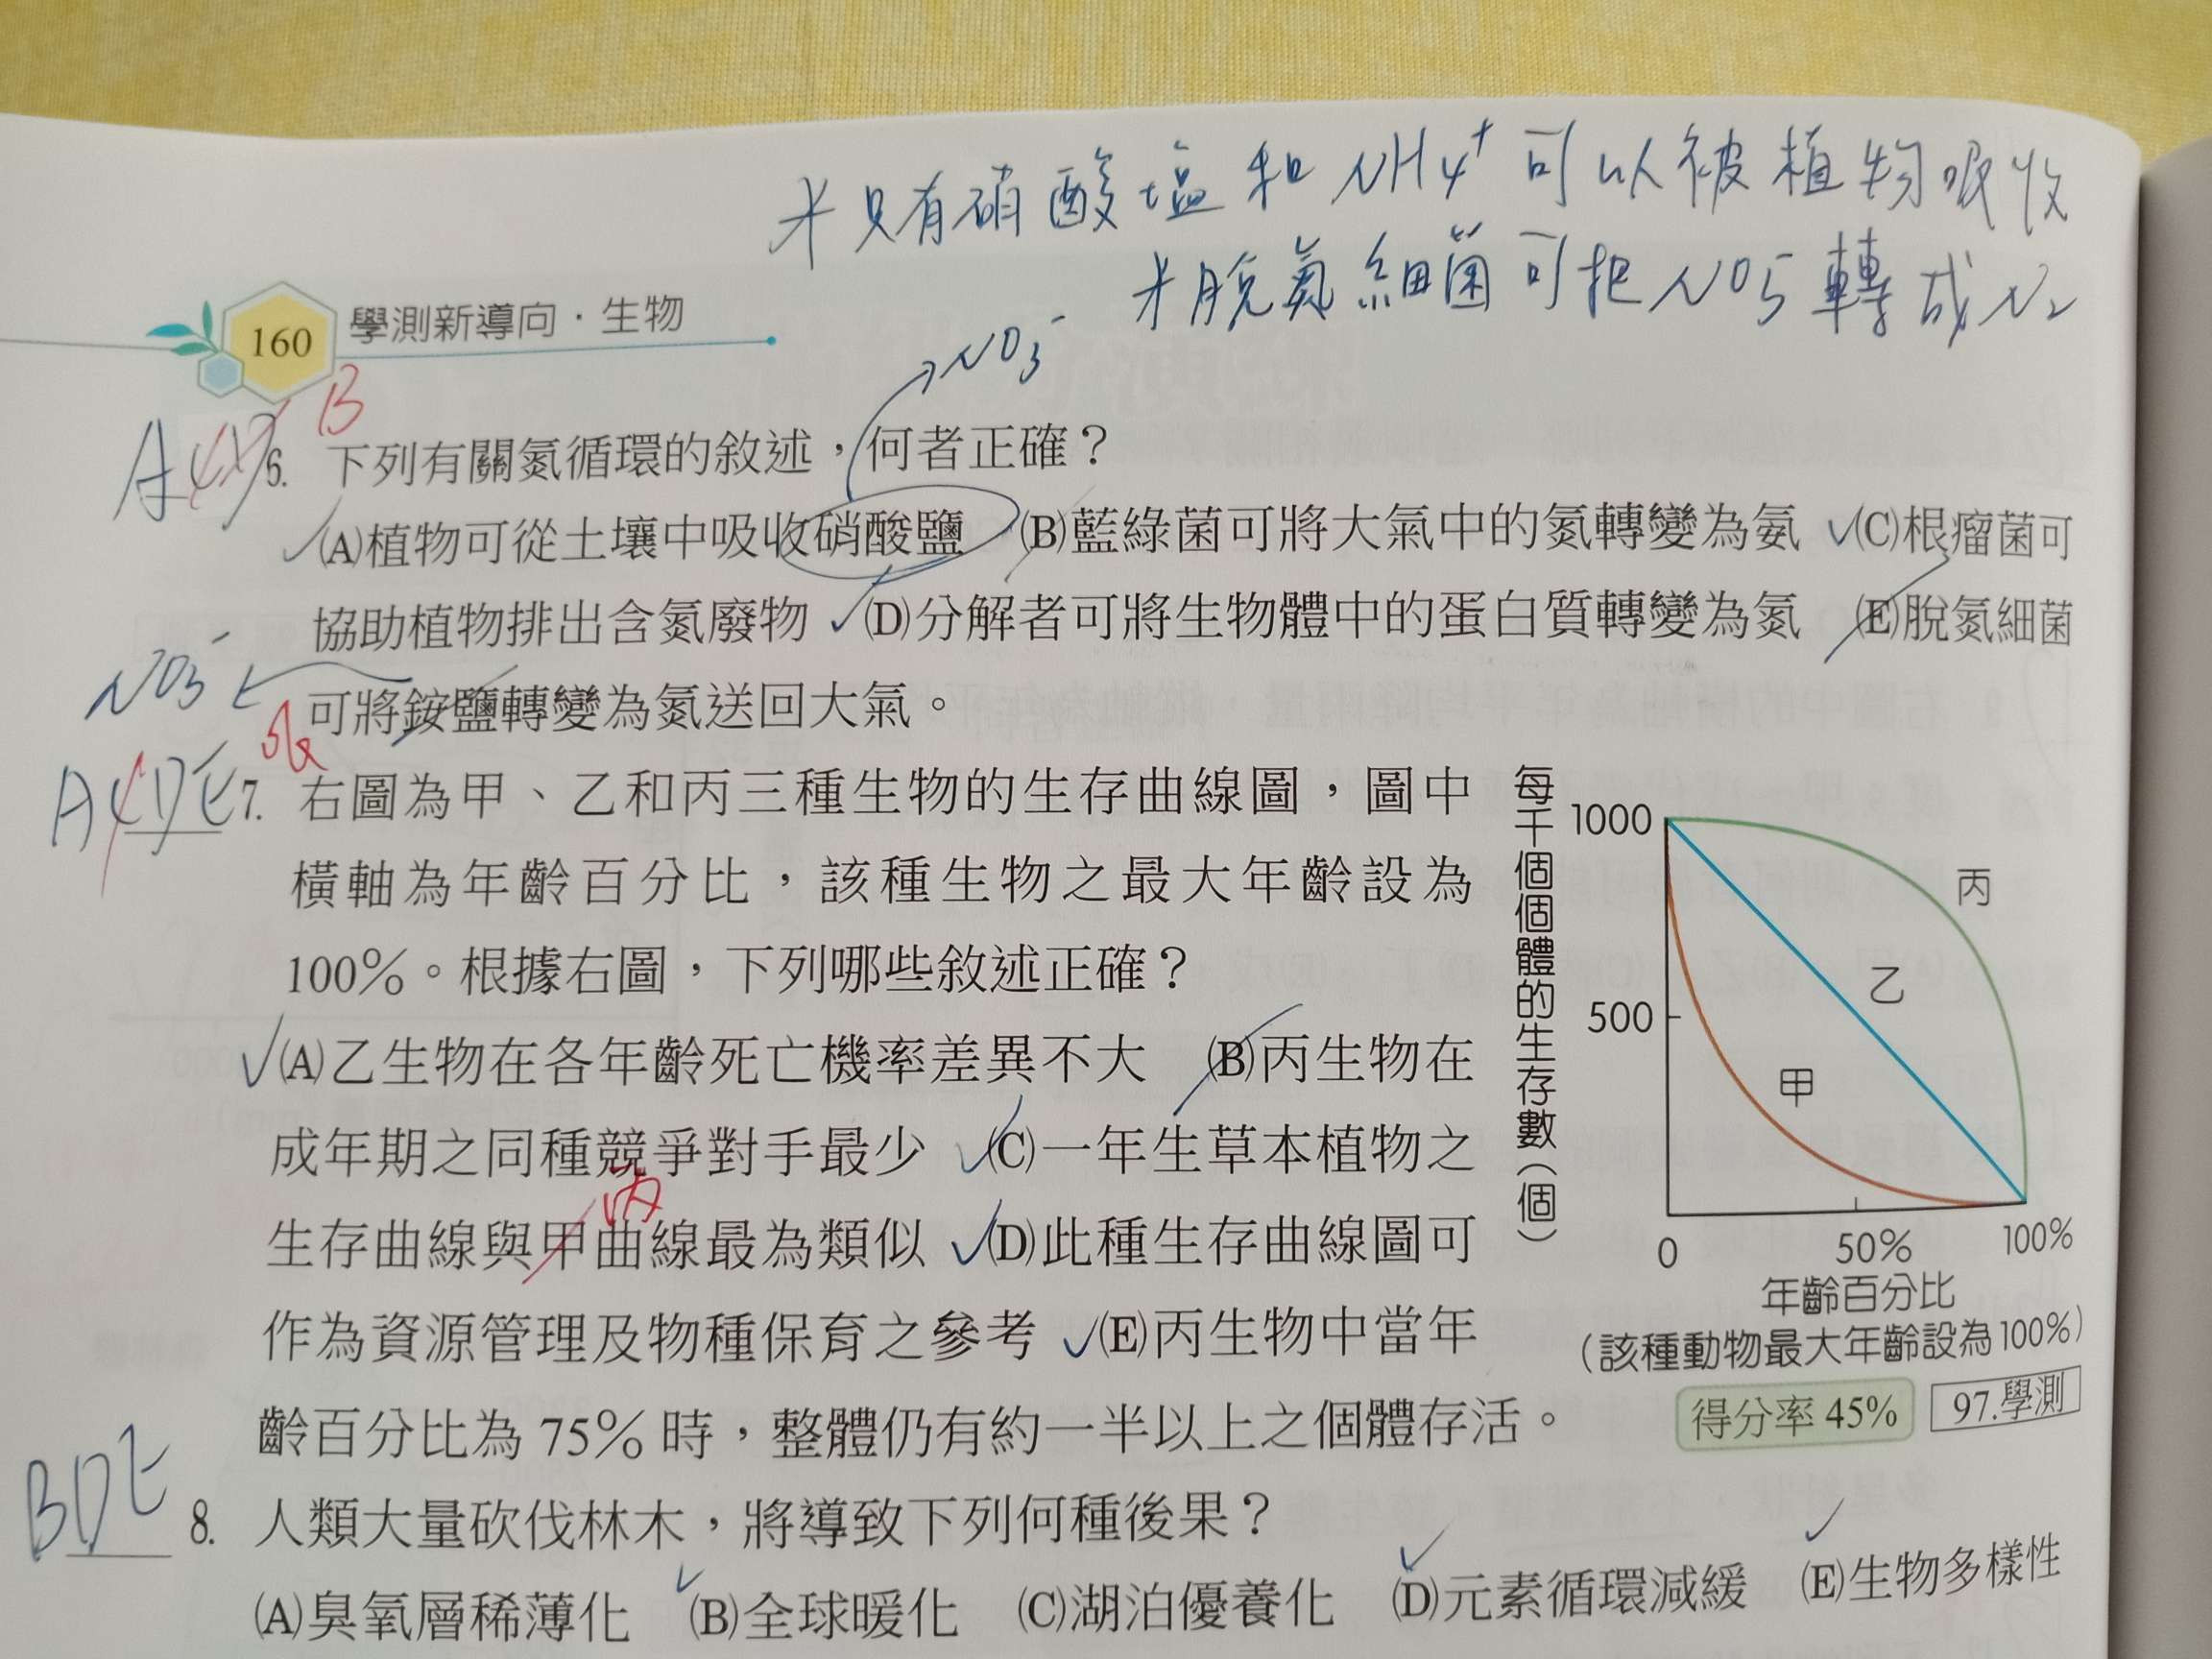 *只有硝酸塩和NH4+可以被植物吸收
*脫氮細菌可把NO3-轉成N2
160 學測新導向·生物
NO3-
B
ACD
6. 下列有關氮循環的敘述，何者正確？
(A)植物可從土壤中吸收硝酸鹽 (B)藍綠菌可將大氣中的氮轉變為氨 (C)根瘤菌可
協助植物排出含氮廢物 (D)分解者可將生物體中的蛋白質轉變為氮 (E)脫氮細菌
NO3-
可將銨鹽轉變為氮送回大氣。
ACDE
7. 右圖為甲、乙和丙三種生物的生存曲線圖，圖中
橫軸為年齡百分比，該種生物之最大年齡設為
100%。根據右圖，下列哪些敘述正確？
(A)乙生物在各年齡死亡機率差異不大 (B)丙生物在
成年期之同種競爭對手最少 (C)一年生草本植物之
丙
生存曲線與甲曲線最為類似 (D)此種生存曲線圖可
作為資源管理及物種保育之參考 (E)丙生物中當年
齡百分比為75%時，整體仍有約一半以上之個體存活。
每千個個體的生存數(個)
1000
500
丙
乙
甲
0 50% 100%
年齡百分比
(該種動物最大年齡設為100%)
得分率 45% 97.學測
BDE
8. 人類大量砍伐林木，將導致下列何種後果？
(A)臭氧層稀薄化 (B)全球暖化 (C)湖泊優養化 (D)元素循環減緩 (E)生物多樣性